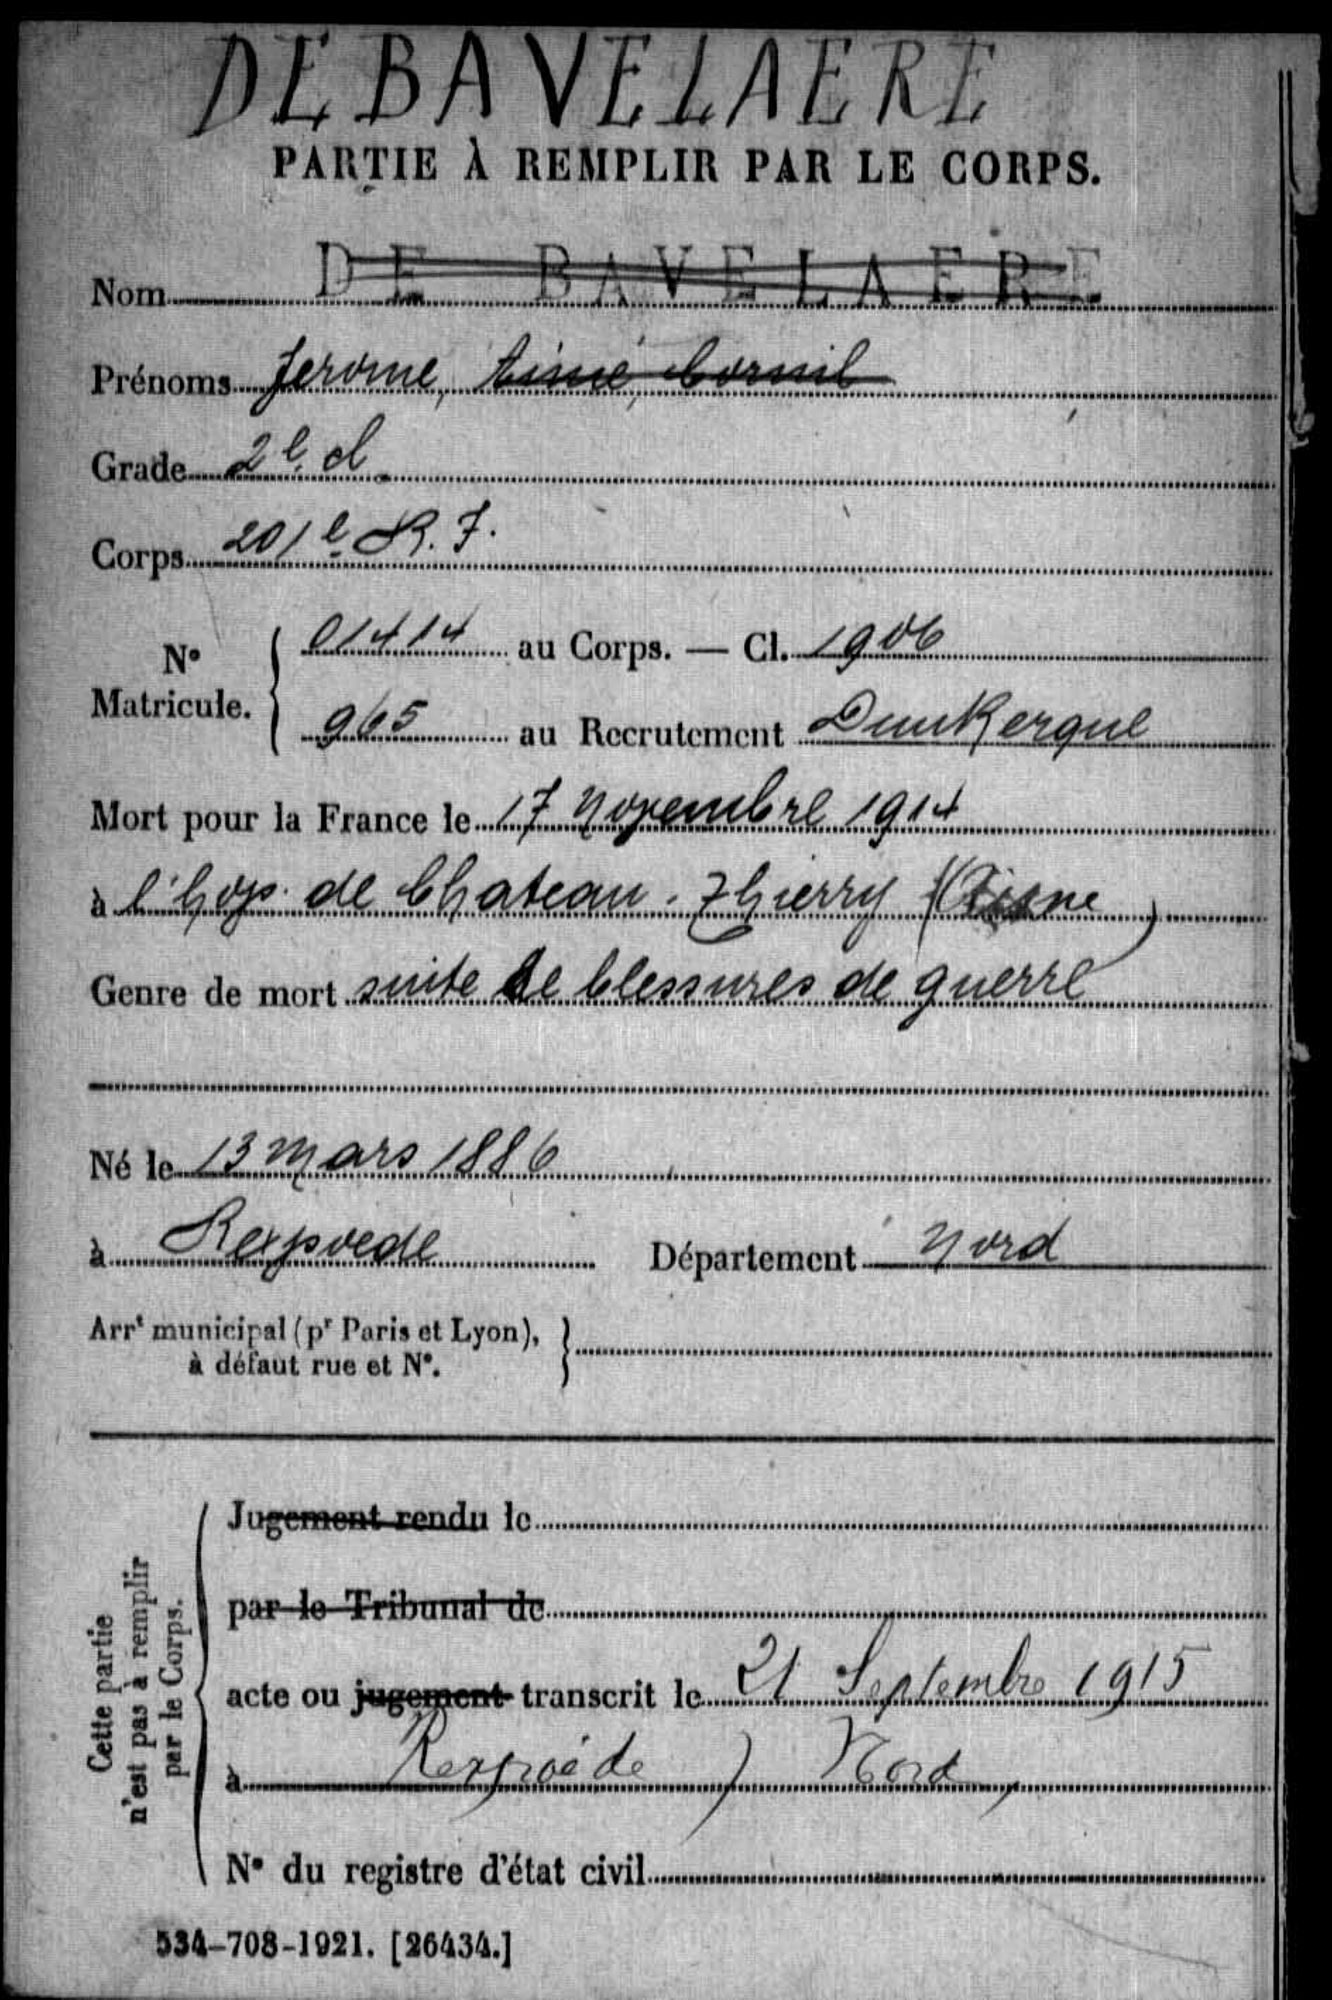 DEBAVELAERE
PARTIE À REMPLIR PAR LE CORPS.
Nom DE BAVELAERE
Prénoms Jerome, Aimé, Cornil
Grade 2e cl.
Corps 201e R. I.
N° Matricule. { 01414 au Corps. — Cl. 1906
965 au Recrutement Dunkerque
Mort pour la France le 17 Novembre 1914
à l'hop. de Chateau-Thierry (Aisne)
Genre de mort suite de blessures de guerre
Né le 13 Mars 1886
à Rexpoede Département Nord
Arrt municipal (pr Paris et Lyon),
à défaut rue et N°.
Cette partie n'est pas à remplir par le Corps.
Jugement rendu le
par le Tribunal de
acte ou jugement transcrit le 21 Septembre 1915
à Rexpoëde ) Nord,
N° du registre d'état civil
534-708-1921. [26434.]